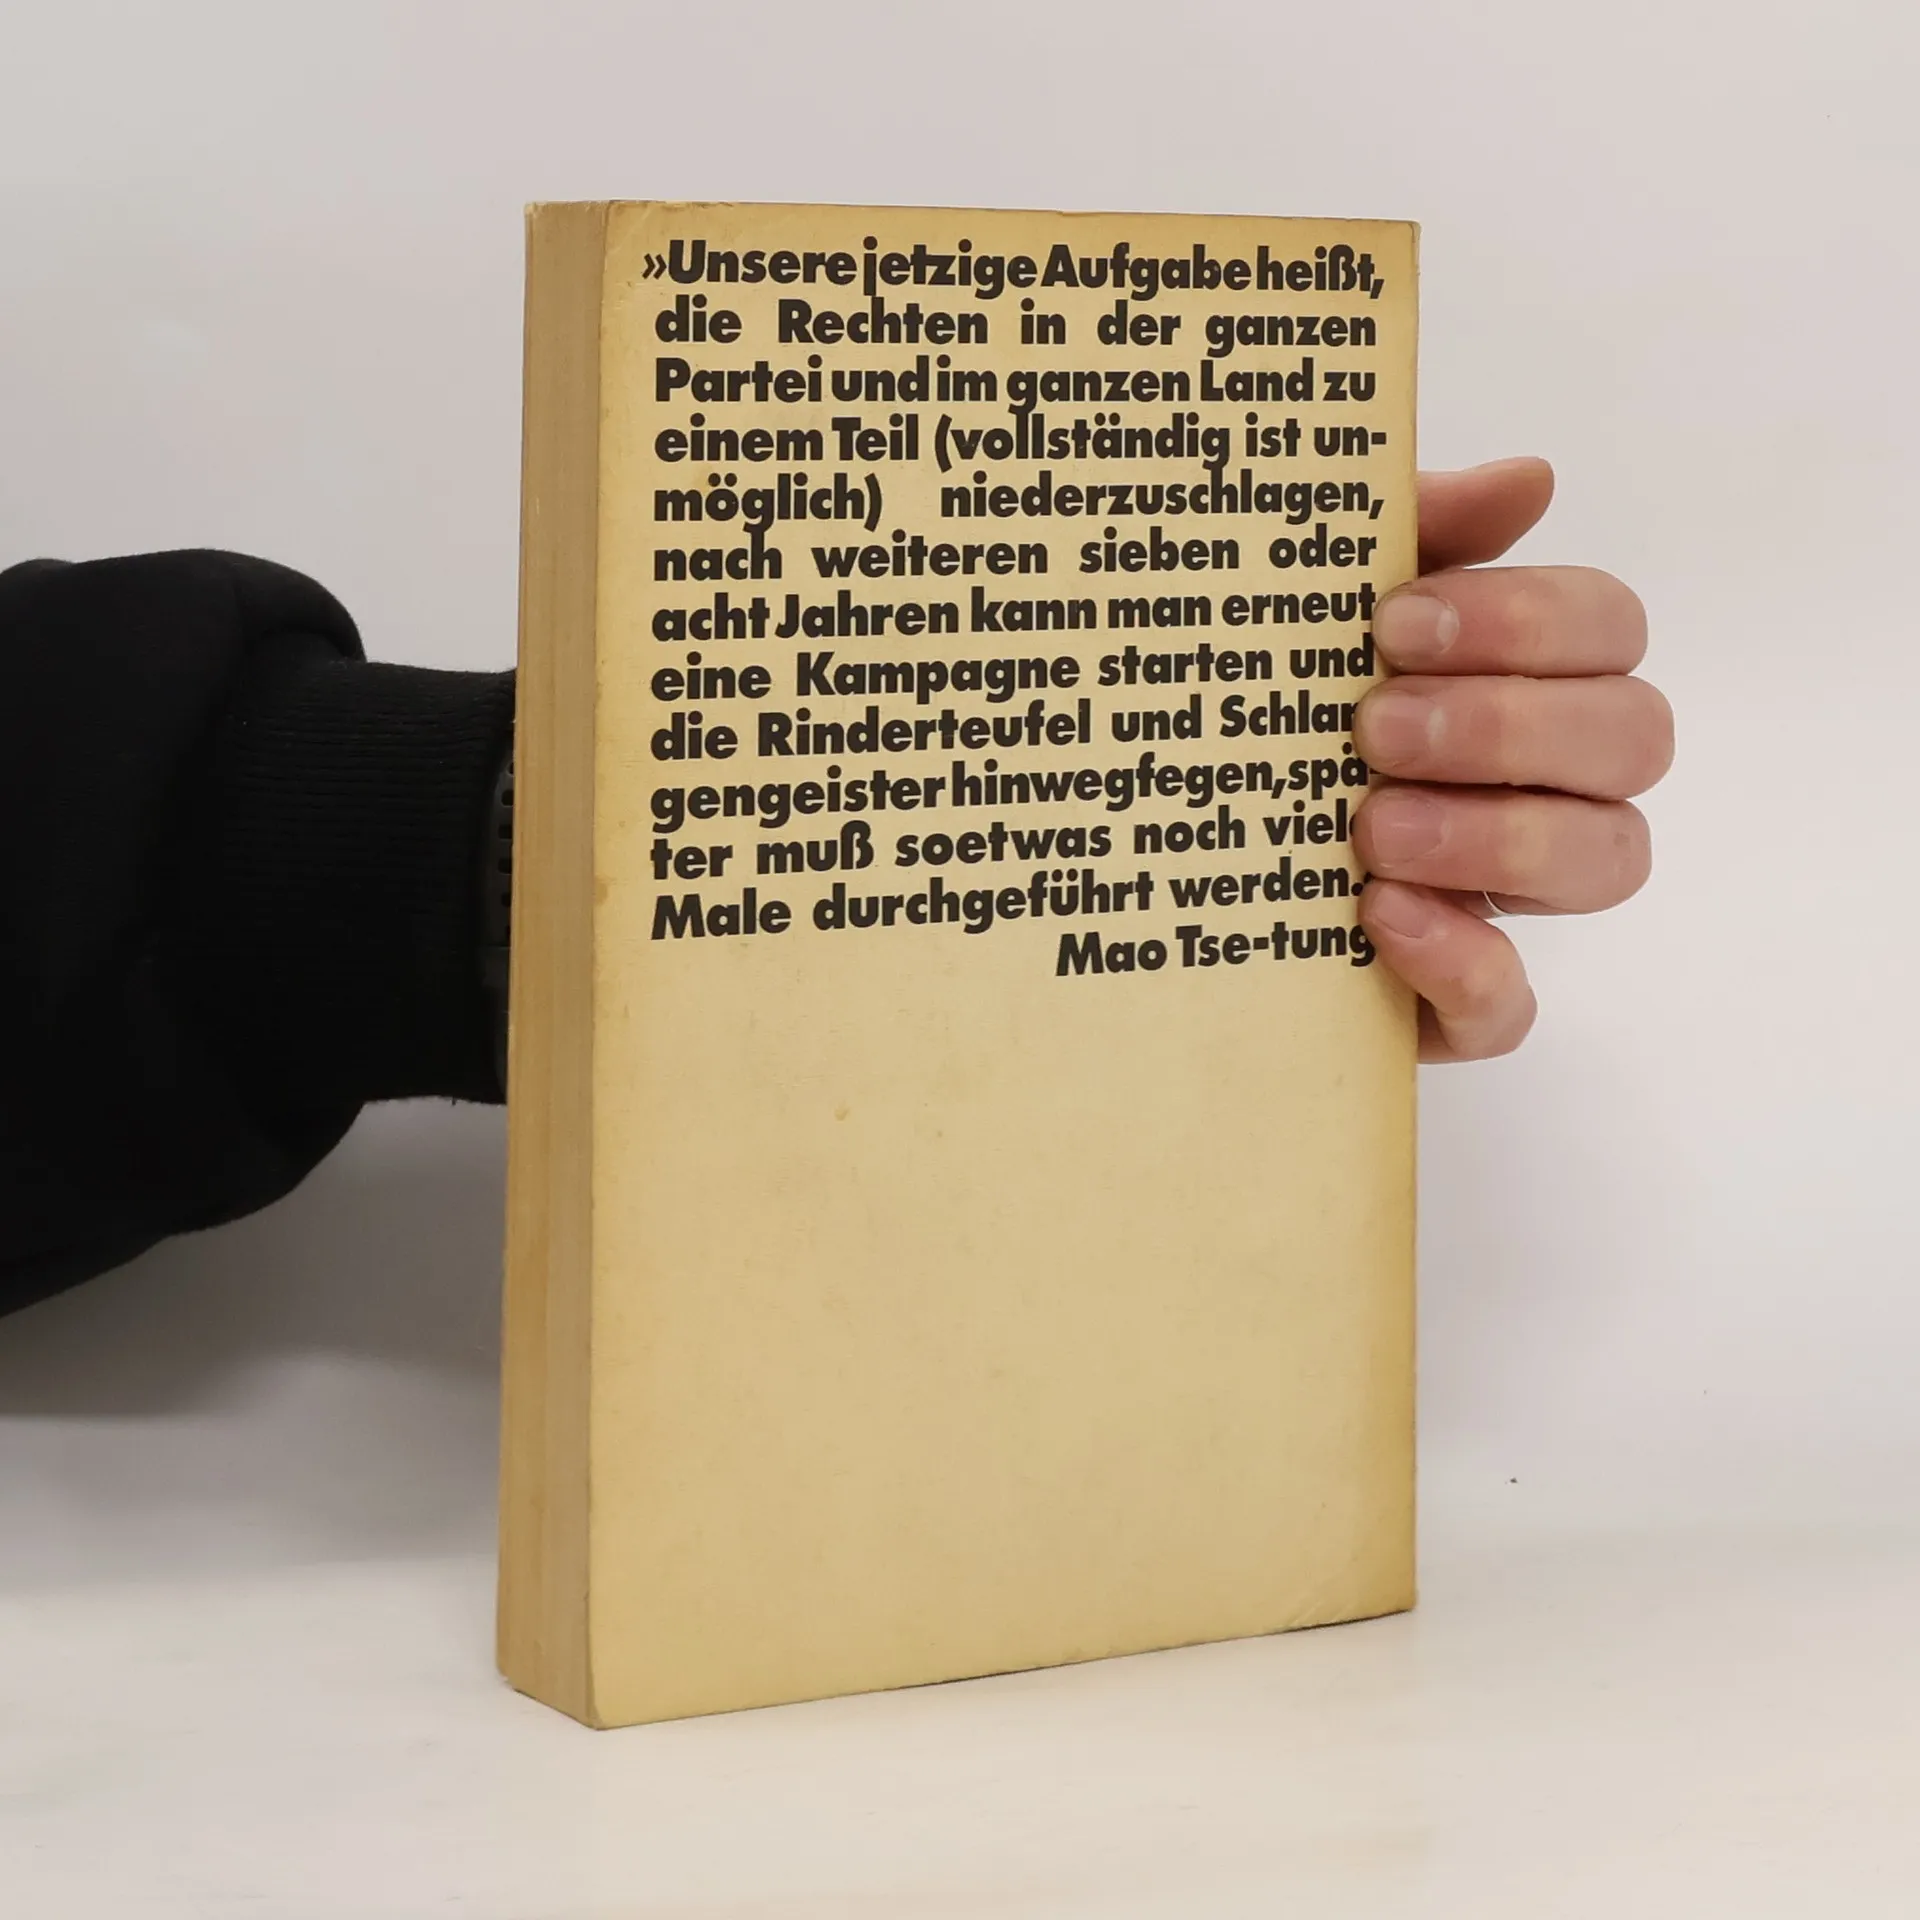 »Unsere jetzige Aufgabe heißt,
die Rechten in der ganzen
Partei und im ganzen Land zu
einem Teil (vollständig ist un-
möglich) niederzuschlagen,
nach weiteren sieben oder
acht Jahren kann man erneut
eine Kampagne starten und
die Rinderteufel und Schlan
gengeister hinwegfegen, spä-
ter muß soetwas noch viele
Male durchgeführt werden.«
Mao Tse-tung